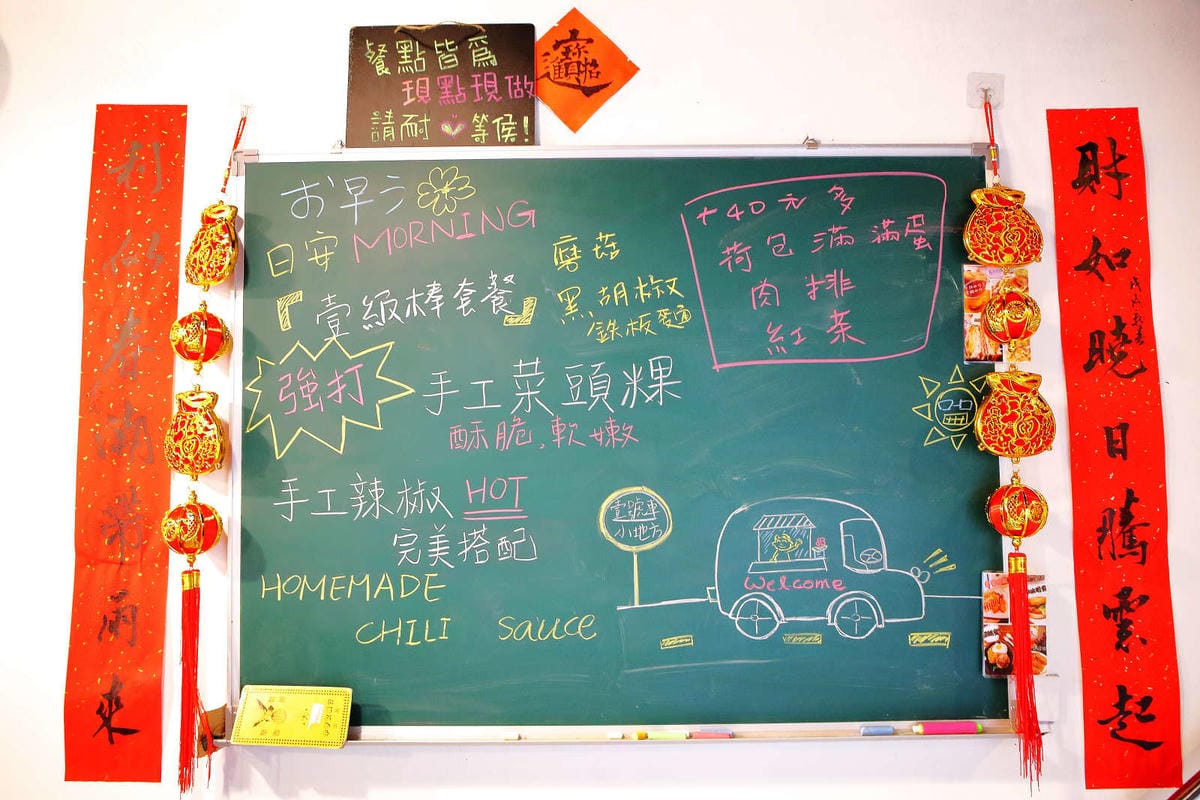 餐點皆為
現點現做
請耐♥等侯!
招財進寶
利似春潮帶雨來
財如曉日騰雲起
お早う
日安 MORNING
『壹級棒套餐』
磨菇
黑胡椒
鉄板麵
+40元多
荷包滿滿蛋
肉排
紅茶
強打
手工菜頭粿
酥脆,軟嫩
手工辣椒 HOT
完美搭配
HOMEMADE
CHILI sauce
壹號車
小地方
Welcome